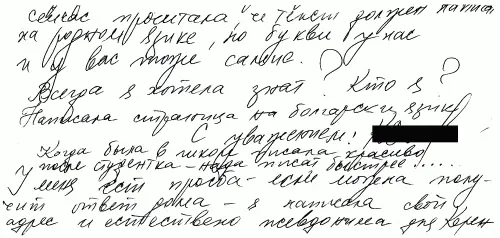 сейчас прочитала че текст должен написа
на родном языке, но букви у нас
и у вас тоже самые.
Всегда я хотела знат? Кто я?
Написала страница на болгарски язик
С уважением!
Когда была в школе писала красиво
после студентка – нада писат быстрее.....
У меня ест просба – если можена полу-
чит ответ дома – я написала свой
адрес и естествено псевдонима для Керен